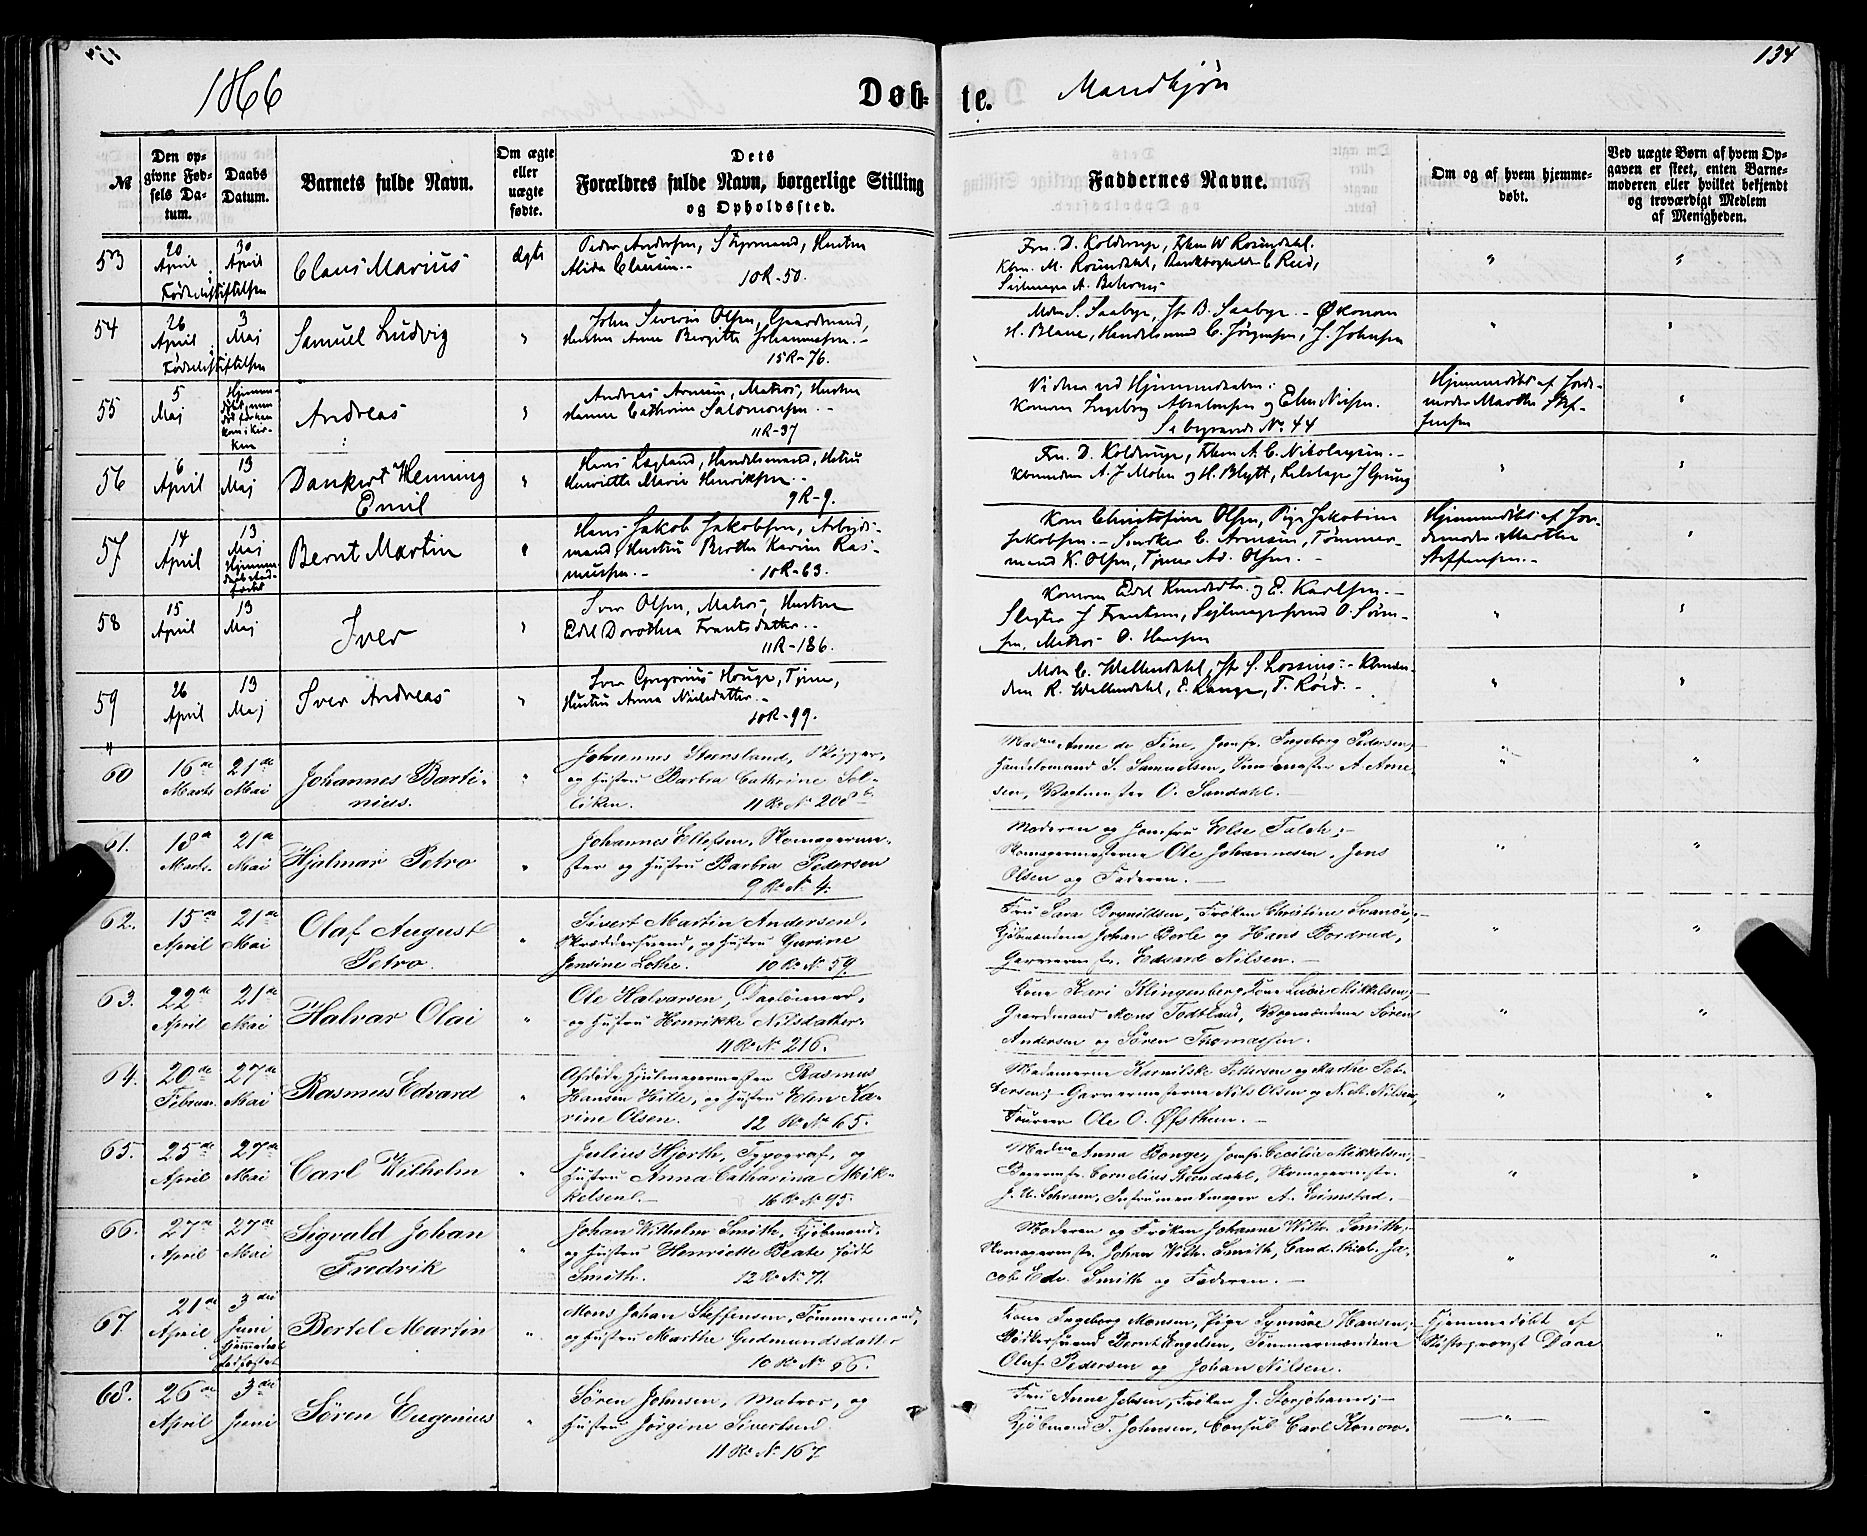 134
1866
Døb- te.
Mandkjøn
№
Den opgivne Fødsels Datum.
Daabs Datum.
Barnets fulde Navn.
Om ægte eller uægte fødte.
Dets Forældres fulde Navn, borgerlige Stilling og Opholdssted.
Faddernes Navne.
Om og af hvem hjemmedøbt.
Ved uægte Børn af hvem Opgaven er skeet, enten Barnemoderen eller hvilket bekjendt og troværdigt Medlem af Menigheden.
53
20 April
30 April
Fødselsstiftelsen
Claus Marius
Ægte
Peder Andersen, Styrmand, Hustru
Alida Clausen.-
10R-50.
Fru D. Koldrup, Frkn W Rosendahl.
Kbm. M. Rosendahl, Bankbogholder C Reed,
Seilmager A.
54
26 April
3 Maj
Fødselsstiftelsen
Samuel Ludvig
"
John Severin Olsen, Gaardmand,
Hustru Anne Birgitte Johannesen.-
15R-76.
Mdm S. Saabye, Jf. B. Saabye.- Økonom
H. Blaue, Handelsmand C. Jørgensen, J. Johnsen
55
5 Maj
Andreas
"
Andreas Arnesen, Matros, Hustru
Hanne Cathrine Salomonsen.-
11R-37
Vidner ved Hjemmedaaben:
Konerne Ingeborg Abrahamsen og Elen Nielsen.
Se begravede No. 44
Hjemmedøbt af Jordemoder Marthe Steffensen
56
6 April
13 Maj
Dankert Henning
Emil
"
Hans Løgland, Handelsmand, Hustru
Henriette Marie Henriksen.-
9R-9.
Fru D. Koldrup, Frkn A. C. Nikolaysen.-
Kbmændene A. J Molen og H. Blytt, Relslager J Grung
57
14 April
13 Maj
Bernt Martin
"
Hans Jakob Jakobsen, Arbejdsmand, Hustru Berthe Karine Rasmussen.-
10R-63.
Kone Christofine Olsen, Pige Jakobine
Jakobsen.- Snedker C. Arnesen, Tømmermand K. Olsen, Tjener Ad. Olsen.
Hjemmedøbt af Jordemoder Marthe
Steffensen.-
58
15 April
13 Maj
Iver
"
Iver Olsen, Matros, Hustru
Edel Dorothea Frantsdatter.-
11R-186.
Konerne Edel Knudsdtr. og E. Karlsen.-
Slagter J Frantsen, Sejlmagersvend O. Sørensen, Matros O. Hansen
59
26 April
13 Maj
Iver Andreas
"
Iver Gregorius Houge, Tjener,
Hustru Anna Nielsdatter.-
10R-99.
Mdm C. Wallendahl, Jfr S. Lossius.- Kbmændene R. Wallendahl, E. Lange, T. Röed.-
60
16de Marts
21de Mai
Johannes Bartinius.
"
Johannes Steensland, Skipper
og Hustru Barbra Cathrine Solliken.
11 R. No 208 b.
Madme Anne de Fine, Jomfr. Ingeborg Pedersen;
Handelsmand S. Samuelsen, A. Arnesen, O. Sundahl.-
61.
18de Marts
21de Mai
Hjalmar Petro
"
Johannes Ellefsen, Skomagermester og Hustru Barbra Pedersen
9 R. N. 4.
Moderen og Jomfru Else Falch;-
Skomagermesterne Ole Johannesen, Jens
Olsen og Faderen.-
62.
15de April
21de Mai
Olaf August
Petro.
"
Sivert Martin Andersen,
Skræddersvend, og Hustru Gurine
Jensine Lothe.
10 R. N. 59.
Fru Sara Brynildsen, Frøken Christine Svanøe;-
Kjøbmændene Johan Berle og Hans Bordrud,
Garvermstr. Edvard Nilsen.-
63.
22de April
21de Mai
Halvar Olai
"
Ole Halvarsen, Daglönner,
og Hustru Henrikke Nilsdatter.
11 R. N. 216.
Kone Keri Klingenberg, Kone Lucie Mikkelsen;-
Gaardmand Mons Todtland, Bogmændene Sören
Andersen og Sören Thomassen.
64.
20de Februar
27de Mai
Rasmus Edvard
"
Afdøde Hjulmagermester Rasmus
Hansen Hitle, og Hustru Elen Karine Olsen.
12 R. N. 65.
Madamerne Karnilske Pettersen og Marthe Pettersen;- Garvermesterne Nils Olsen og N. M. Nilsen,
Ole O. Øfsthun.-
65.
25de April
27de Mai
Carl Wilhelm
"
Julius Hjorth, Typograf, og
Hustru Anna Catharina Mikkelsen.-
16 R. N. 95.
Madme Anna Bonge, Jomfr. Cecilie Mikkelsen;-
Bagermstr. Cornelius Steendahl, Skomagermstr.
J. U. Schram, Instrumentmager A. Grimstad.-
66.
27de April
27de Mai
Sigvald Johan
Fredrik
"
Johan Wilhelm Smith, Kjøbmand,
og Hustru Henriette Beate født
Smith.
12 R. N. 71.
Moderen og Frøken Johanne Wilh. Smith;-
Skomagermstr. Johan Wilh. Smith, Cand. theol. Jacob Edv. Smith og Faderen.-
67.
21de April
3die Juni
Hjemmedaab
stadfæstet
Bertel Martin
"
Mons Johan Steffensen, Tømmermand,
og Hustru Marthe Gudmundsdatter
10 R. No 86.
Kone Ingeborg Monsen, Pige Synnöve Hansen;-
Bødkersvend Bernt Engelsen, Tømmermændene
Oluf Pedersen og Johan Nilsen.
Hjemmedøbt af
Stiftsprovst Daae
68.
26de April
3die Juni
Sören Eugenius
"
Sören Johnsen, Matros, og
Hustru Jörgine Sivertsen
11 R. N. 167
Fru Anne Jebsen, Frøken J. Storjohann;-
Kjøbmand F. Johnsen, Consul Carl Konow.